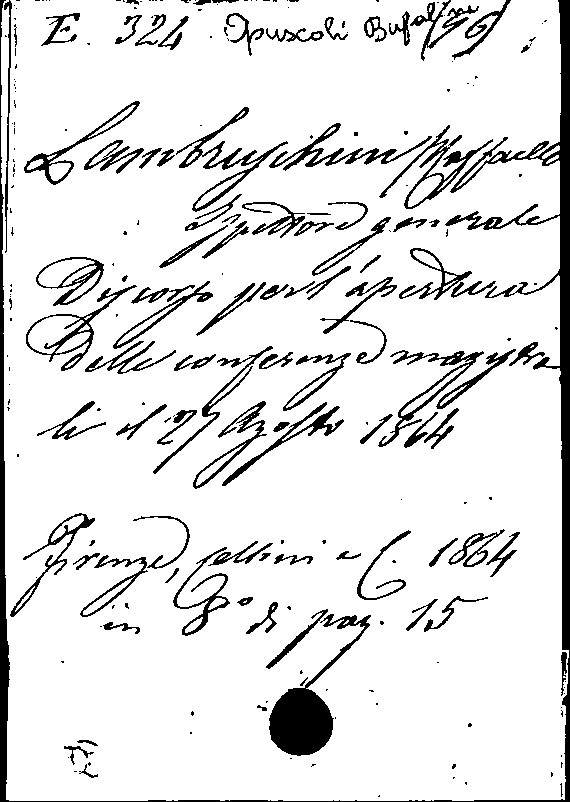 E. 324 Opuscoli Bufalini (56)
Lambruschini Raffaello
Ispettore generale
Discorso per l'apertura
delle conferenze magistra
li il 27 Agosto 1864
Firenze, Cellini e C. 1864
in 8° di pag. 15